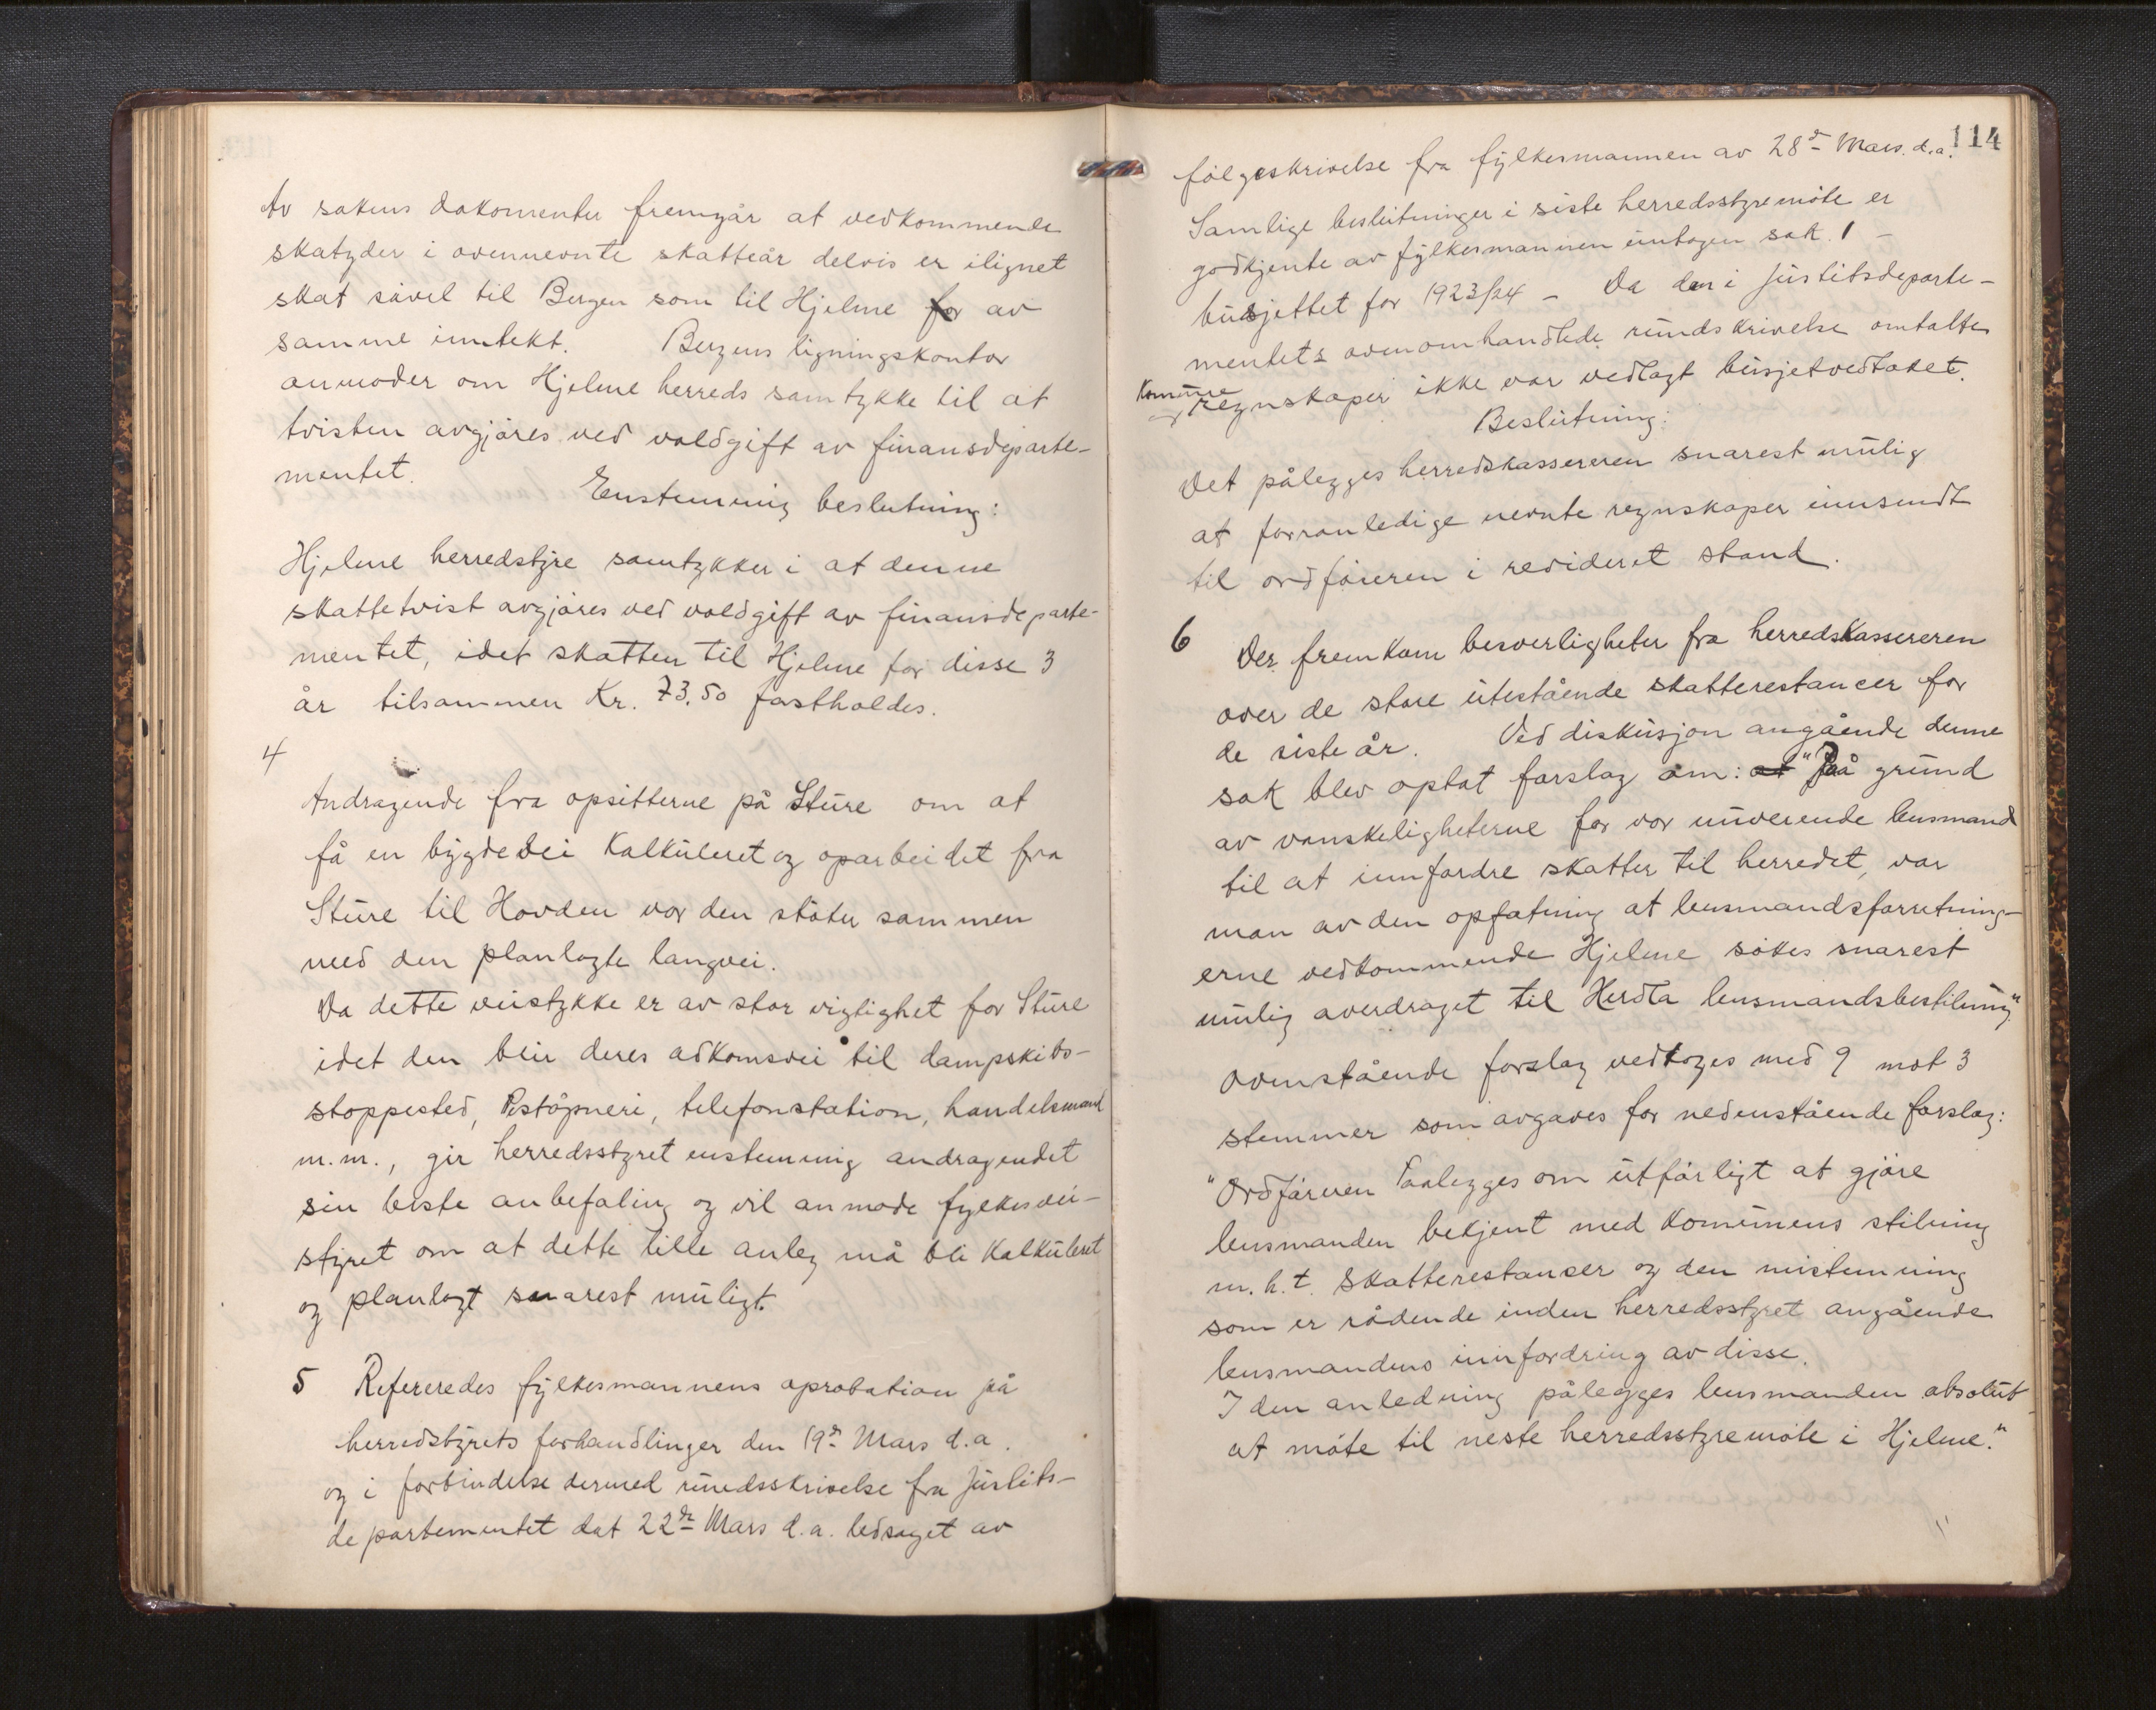 Av sakens dokomenter fremgår at vedkommende
skatyder i ovennevnte skatteår delvis er ilignet
skat såvel til Bergen som til Hjelme for av
samme inntekt. Bergens ligningskontor
anmoder om Hjelme herreds samtykke til at
tvisten avgjøres ved voldgift av finansdeparte-
mentet.
Enstemmig beslutning:
Hjelme herredstyre samtykker i at denne
skattetvist avgjøres ved voldgift av finansdeparte-
mentet, idet skatten til Hjelme for disse 3
år tilsammen Kr. 73,50 fastholdes.
4
Andragende fra opsitterne på Sture om at
få en bygdevei kalkuleret og oparbeidet fra
Sture til Hovden vor den støter sammen
med den planlagte langvei.
Da dette veistykke er av stor vigtighet for Sture
idet den blir deres adkomsvei til dampskibs-
stoppested, Poståpneri, telefonstation, handelsmand
m.m., gir herredsstyret enstemmig andragendet
sin beste anbefaling og vil anmode fylkesvei-
styret om at dette lille anleg må bli kalkuleret
og planlagt snarest muligt.
5 Refereredes fylkesmannens aprobation på
herredstyrets forhandlinger den 19de Mars d.a.
og i forbindelse dermed rundsskrivelse fra Justits-
departementet dat 22de Mars d.a. ledsaget av
114
følgeskrivelse fra fylkesmannen av 28de Mars. d.a.
Samlige beslutninger i siste herredsstyremøte er
godkjente av fylkesmannen unntagen sak. 1 -
budsjettet for 1923/24 - Da den i Justitsdeparte-
mentets ovenomhandlede rundskrivelse omtalte
Komune
regnskaper ikke var vedlagt busjetvedtaket.
Beslutning:
Det pålegges herredskassereren snarest mulig
at forranledige nevnte regnskaper innsendt
til ordføreren i revideret stand.
6 Der fremkom besverligheter fra herredskassereren
over de store utestående skatterestancer for
de siste år. Ved diskusjon angående denne
sak blev optat forslag om: at "På grund
av vanskeligheterne for vor nuverende lensmand
til at innfordre skatter til herredet, var
man av den opfatning at lensmandsforretning-
erne vedkommende Hjelme søkes snarest
mulig overdraget til Herdla lensmandsbestilling"
Ovenstående forslag vedtoges med 9 mot 3
stemmer som avgaves for nedenstående forslag:
"Ordføreren Paalegges om utførligt at gjøre
lensmanden bekjent med komunens stilling
m.h.t. skatterestanser og den mistemning
som er rådende inden herredsstyret angående
lensmandens innfordring av disse.
I den anledning pålegges lensmanden absolut
at møte til neste herredsstyremøte i Hjelme."